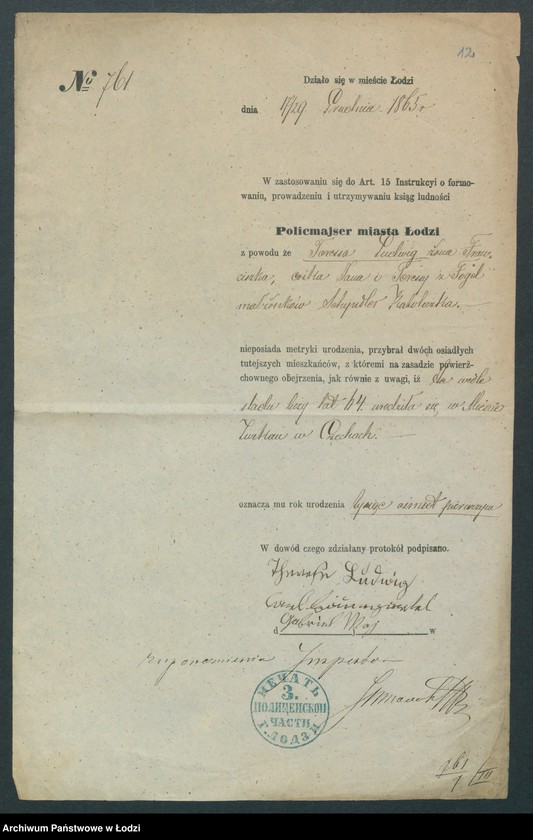 12
№ 761
Działo się w mieście Łodzi
dnia 17/29 Grudnia 1865 r
W zastosowaniu się do Art. 15 Instrukcyi o formo-
waniu, prowadzeniu i utrzymywaniu ksiąg ludności
Policmajser miasta Łodzi
z powodu że Teressa Ludwig żona Fran-
ciszka, córka Jana i Teresy z
małżonków Schyndler Katoliczka.
nieposiada metryki urodzenia, przybrał dwóch osiadłych
tutejszych mieszkańców, z któremi na zasadzie powierz-
chownego obejrzenia, jak równie z uwagi, iż
liczy lat 64 urodziła się w Mieście
Zwittau w Czechach.
oznacza mu rok urodzenia tysiąc ośmset pierwszy
W dowód czego zdziałany protokół podpisano.
Therese Ludwig
Carl
Gabriel Maj
d w
z upoważnienia Inspektor
ПЕЧАТЬ
3.
ПОЛИЦЕЙСКОЙ
ЧАСТИ
Г. ЛОДЗИ
761
1/III
Archiwum Państwowe w Łodzi